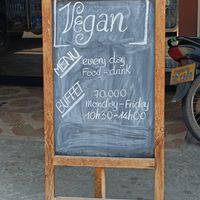 Vegan
MENU
every day
Food - drink
BUFFET
70.000
Monday - Friday
10h30 - 14h00